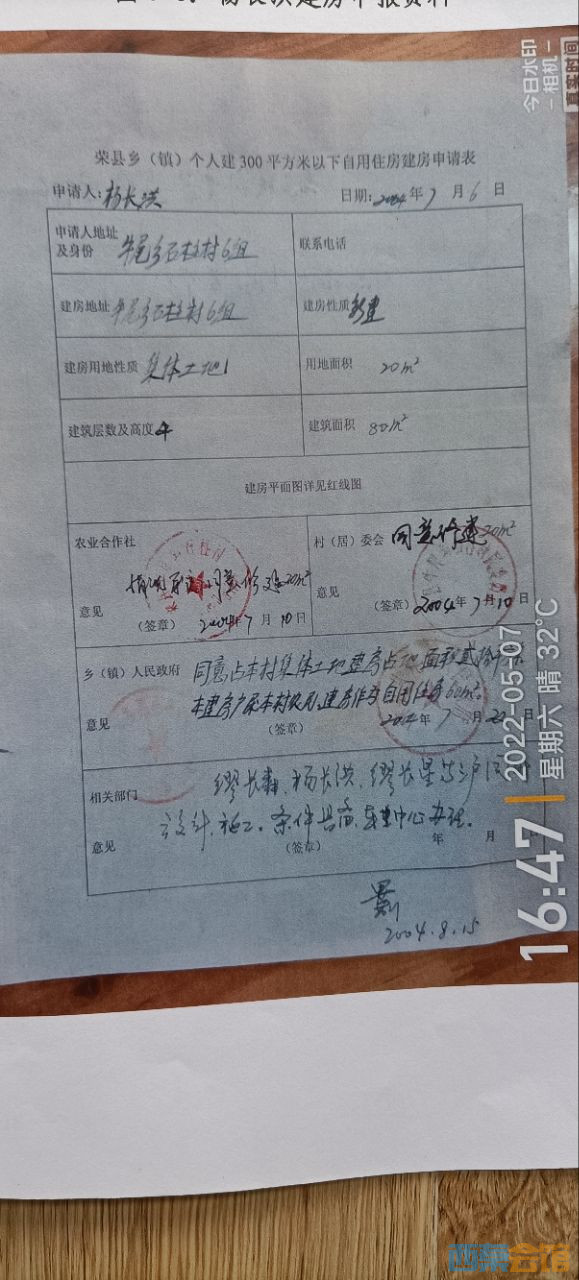 杨长洪建房申报资料
荣县乡（镇）个人建300平方米以下自用住房建房申请表
申请人：杨长洪 日期：2004年7月6日
申请人地址及身份 牛尾乡石柱村6组 联系电话
建房地址 牛尾乡石柱村6组 建房性质 新建
建房用地性质 集体土地 用地面积 20m²
建筑层数及高度 4 建筑面积 80m²
建房平面图详见红线图
农业合作社 村（居）委会 同意修建20m²
同意修建20m²
意见 意见
（签章） 2004年7月10日 （签章） 2004年7月10日
乡（镇）人民政府 同意占本村集体土地建房占地面积贰拾
本建房户属本村农民，建房作为自用住房60m²。
意见 （签章） 2004年7月22日
相关部门 缪长春、杨长洪、缪长星
意见 设计、施工。条件具备，中心办理。
（签章） 年 月
2004.8.15
今日水印
-相机-
真实时间
16:47
2022-05-07
星期六 晴 32℃
西秦会馆